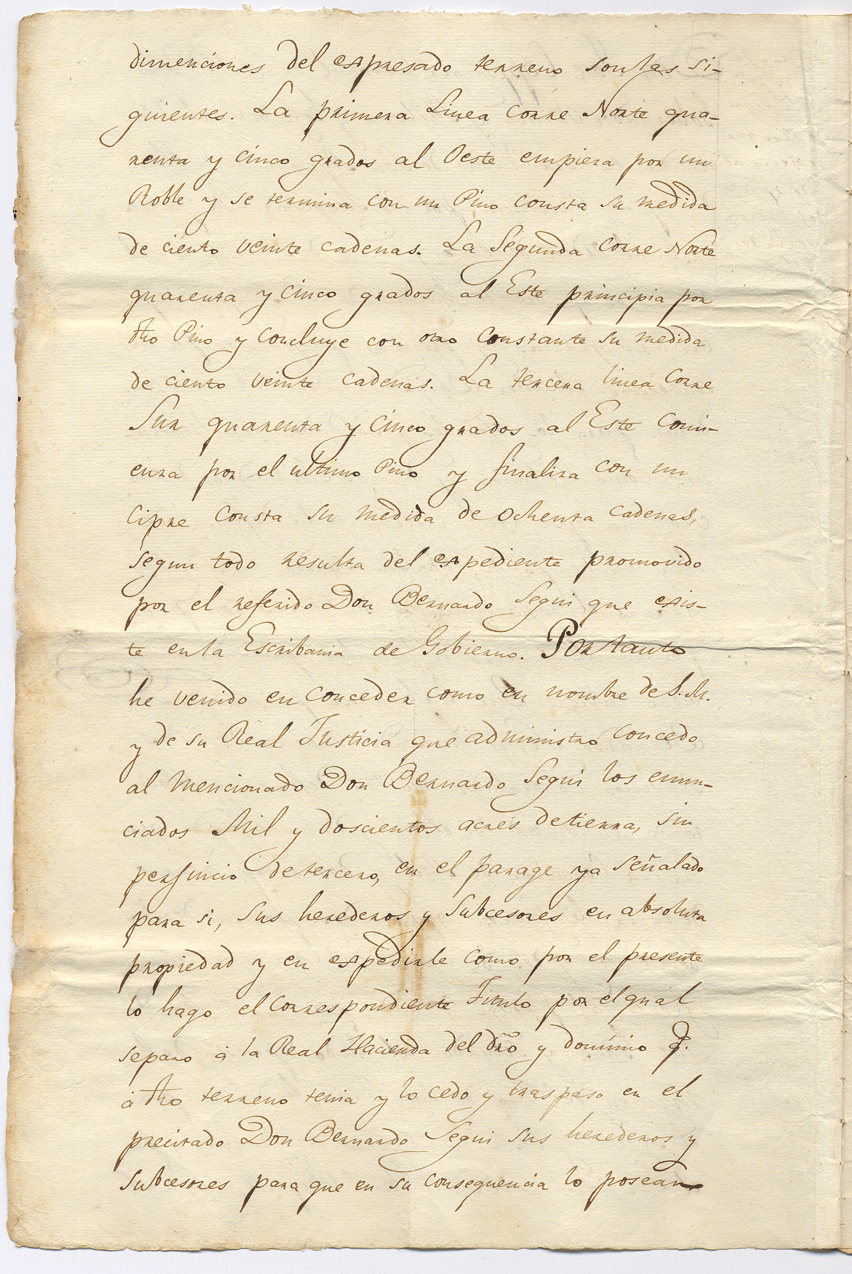 dimenciones del expresado terreno son las si-
guientes. La primera Linea corre Norte qua-
renta y cinco grados al Oeste empieza por un
Roble y se termina con un Pino consta su medida
de ciento veinte cadenas. La Segunda corre Norte
quarenta y cinco grados al Este principia por
dho Pino y concluye con otro constante su medida
de ciento veinte cadenas. La tercera linea corre
Sur quarenta y cinco grados al Este comi-
enza por el ultimo Pino y finaliza con un
Cipre consta su medida de ochenta cadenas,
segun todo resulta del expediente promovido
por el referido Don Bernardo Segui que exis-
te en la Escribania de Gobierno. Portanto
he venido en conceder como en nombre de S. M.
y de su Real Justicia que administro concedo
al mencionado Don Bernardo Segui los enun-
ciados Mil y doscientos acres de tierra, sin
perjuicio de tercero, en el parage ya señalado
para si, sus herederos y subcesores en absoluta
propiedad y en expedirle como por el presente
lo hago el correspondiente Titulo por el qual
separo á la Real Hacienda del dño y dominio q.
á dho terreno tenia y lo cedo y traspaso en el
precitado Don Bernardo Segui sus herederos y
subcesores para que en su consequencia lo posean